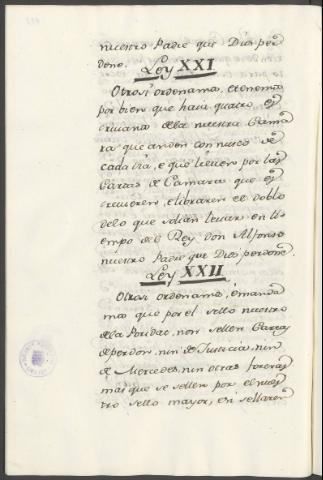 nuestro Padre que Dios per
done.
Ley XXI
Otrosi ordenamos, etenemos
por bien que haia quatro es
crivanos dela nuestra Cama
ra que anden con nusco de
cada dia, e que lieven por las
Cartas de Camara que es
crevieren, e libraren el doblo
delo que solian levar en ti
empo del Rey don Alfonso
nuestro Padre que Dios perdone.
Ley XXII
Otrosi ordenamos, é manda
mos que por el sello nuestro
dela Poridat, non sellen Cartas
de perdon, nin de Justicia, nin
de Mercedes, nin otras foreras
mas que se sellen por el nues
tro sello mayor, e si sellaren